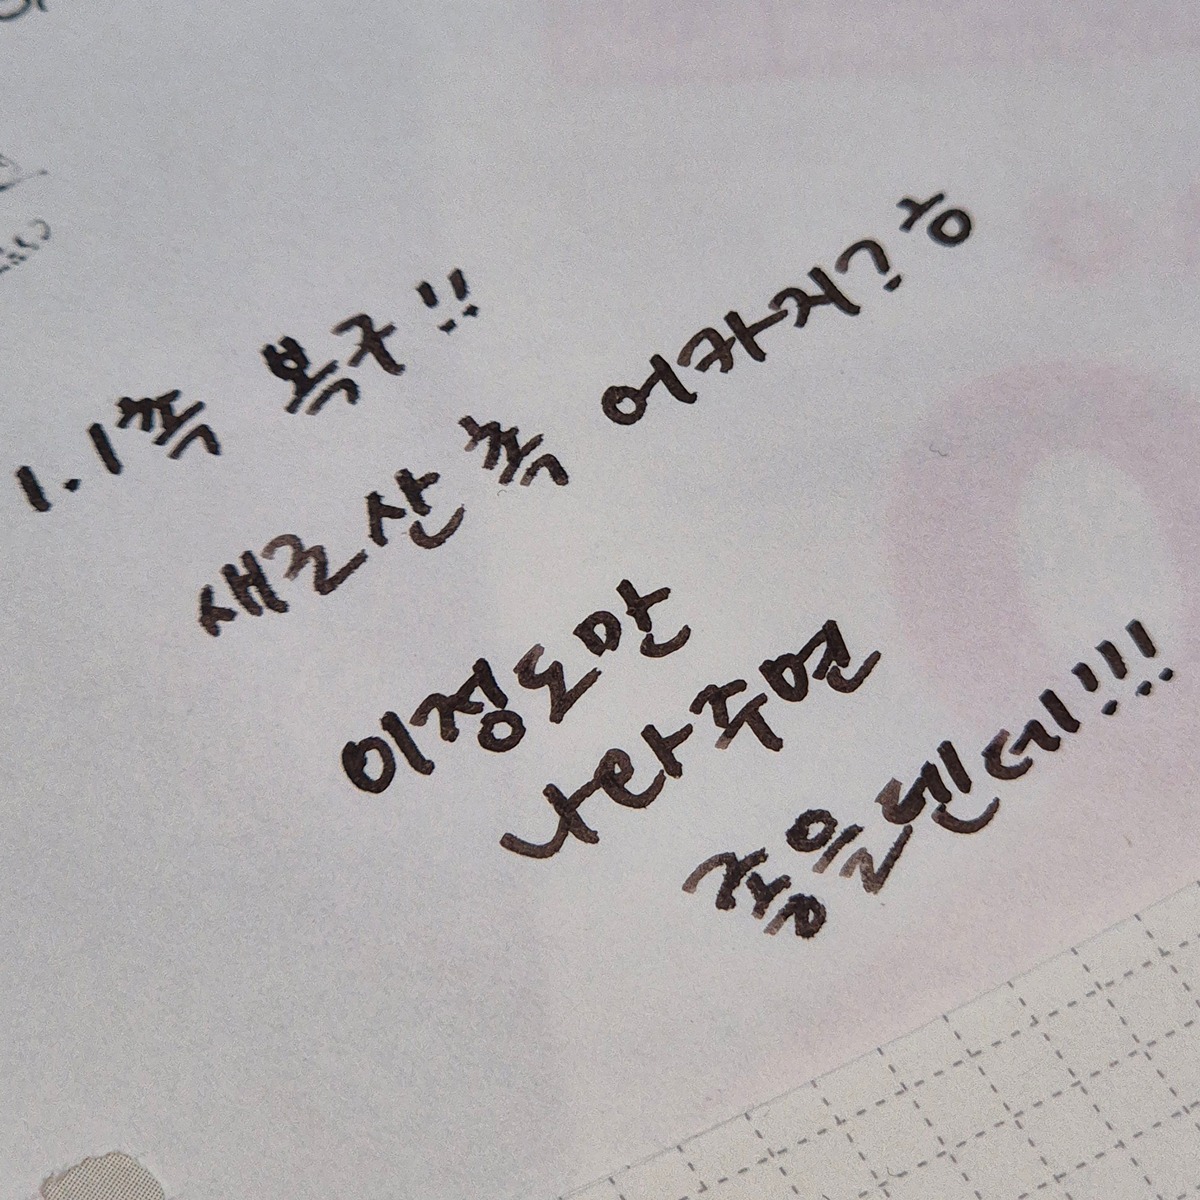 1.1촉 복구!!
새로산 촉 어카지?ㅎ
이정도만
나와주면
좋을텐데!!!